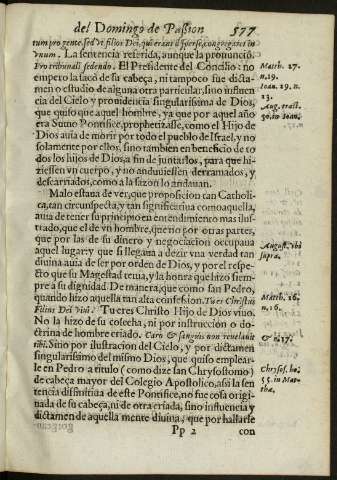 del Domingo de Passion 577
tum pro gente, sed vt filios Dei, qui erant dispersi, congregaret in
vnum. La sentencia referida, aunque la pronunciò
Pro tribunali sedendo. El Presidente del Concilio: no
empero la sacò de su cabeça, ni tampoco fue dicta-
men o estudio de alguna otra particular, sino influen-
cia del Cielo y prouidencia singularissima de Dios,
que quiso que aquel hombre, ya que por aquel año
era Sumo Pontifice, prophetizasse, como el Hijo de
Dios auia de morir por todo el pueblo de Israel, y no
solamente por ellos, sino tambien en beneficio de to
dos los hijos de Dios, a fin de juntarlos, para que hi-
ziessen vn cuerpo, y no anduuiessen derramados, y
descarriados, como a la sazon lo andauan.
Malo estaua de ver, que proposicion tan Catholi-
ca, tan circunspecta, y tan significatiua como aquella,
auia de tener su principio en entendimiento mas ilus-
trado, que el de vn hombre, que no por otras partes,
que por las de su dinero y negociacion ocupaua
aquel lugar: y que si llegaua a dezir vna verdad tan
diuina auia de ser por orden de Dios, y por el respe-
cto que su Magestad tenia, y la honra que hizo siem-
pre a su dignidad. De manera, que como san Pedro,
quando hizo aquella tan alta confession. Tu es Christus
Filius Dei viui. Tu eres Christo Hijo de Dios viuo.
No la hizo de su cosecha, ni por instrucion o do-
ctrina de hombre criado. Caro & sanguis non reuelauit
tibi. Sino por ilustracion del Cielo, y por dictamen
singularissimo del mismo Dios, que quiso emplear-
le en Pedro a titulo (como dize san Chrysostomo)
de cabeça mayor del Colegio Apostolico, assi la sen
tencia difinitiua de este Pontifice, no fue cosa origi-
nada de su cabeça, ni de otra criada, sino influencia y
dictamen de aquella mente diuina, que por hallarse
Pp 2 con
Matth. 27.
n. 19.
Ioan. 19. n.
13.
Aug. tract.
in Ioan.
August. vbi
supra.
Matth. 16.
n. 16.
& n. 17.
Chrysos. ho.
55. in Mat-
thæ.